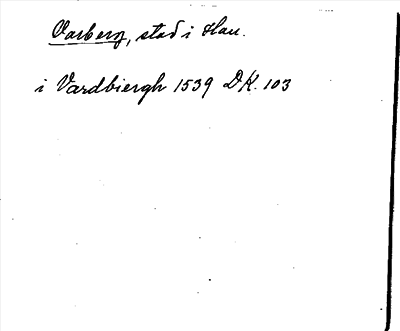 Varberg, stad i Hall.
i Vardbiergh 1539 DK. 103